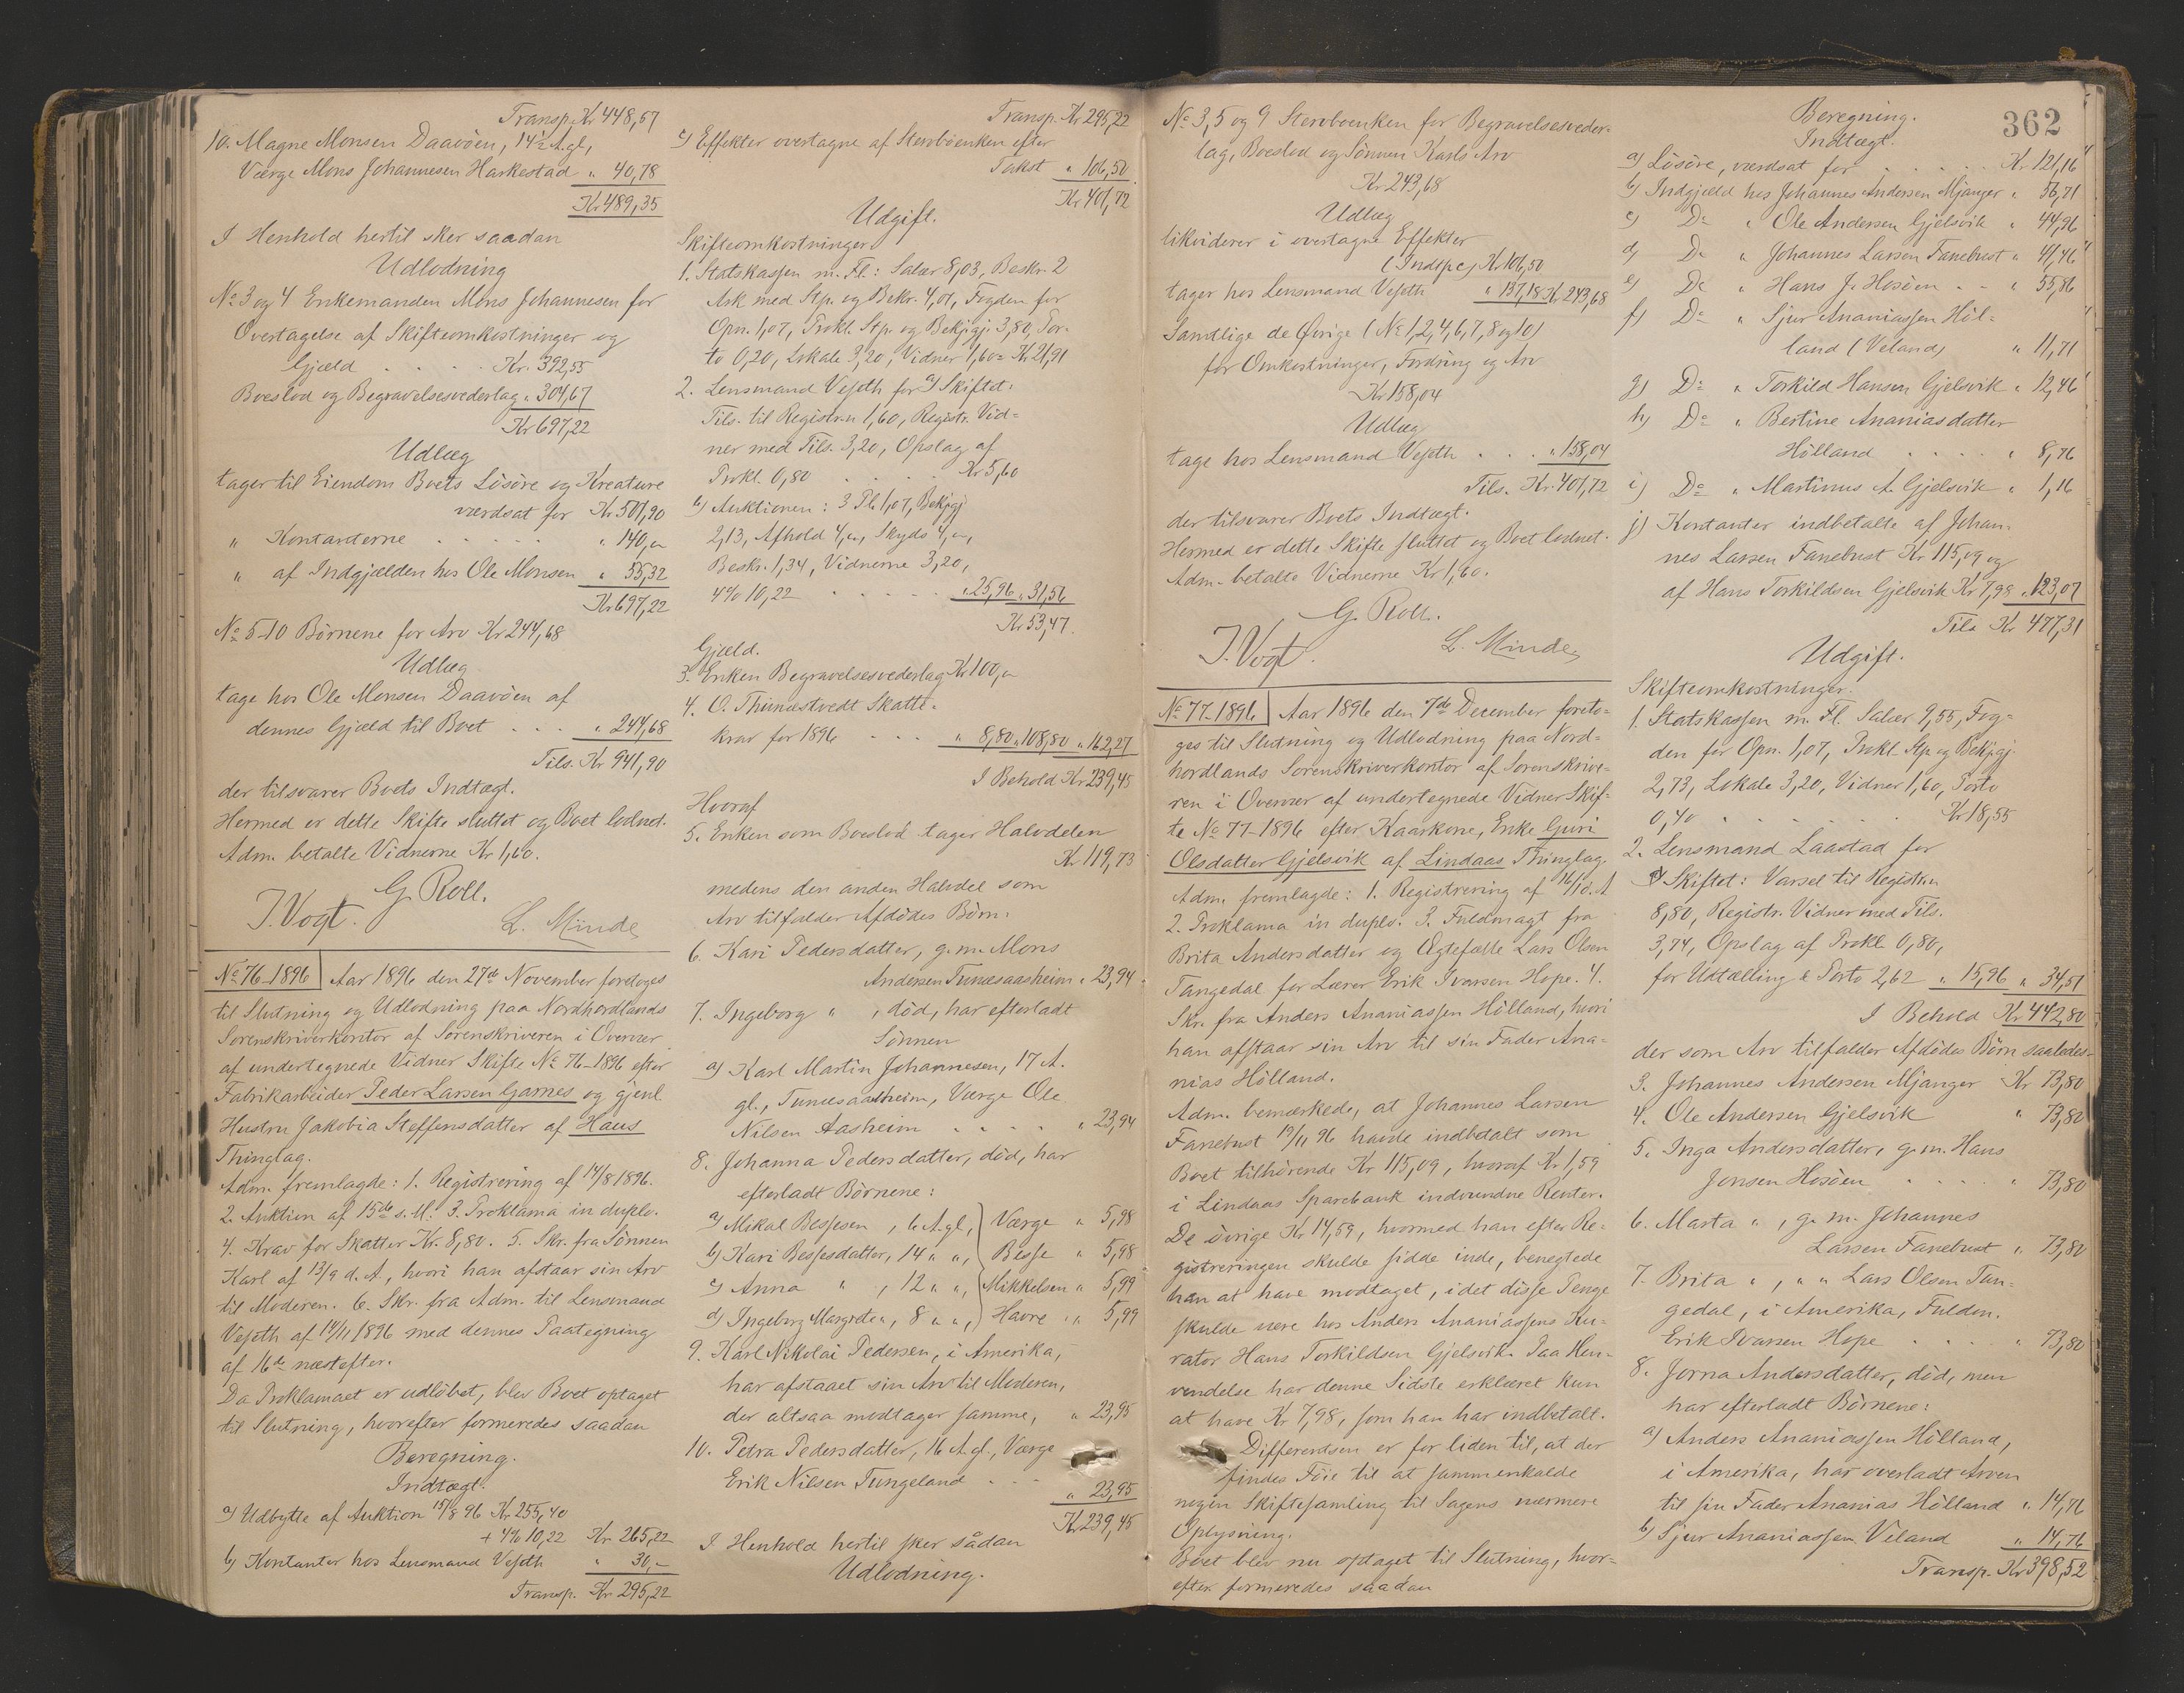 Transp. Kr 448,57
10. Magne Monsen Daavöen, 14½ A. gl,
Værge Mons Johannesen Harkestad " 40,78
Kr 489,35
I Henhold hertil sker saadan
Udlodning
No 3 og 4 Enkemanden Mons Johannesen for
Overtagelse af Skifteomkostninger og
Gjæld . . . . Kr. 392,55
Boeslod og Begravelsesvederlag " 304,67
Kr 697,22
Udlæg
tager til Eiendom Boets Lösöre og Kreature
værdsat for Kr 501,90
" Kontanterne . . . . . " 140,"
" af Indgjælden hos Ole Monsen " 55,32
Kr 697,22
No 5-10 Börnene for Arv Kr 244,68
Udlæg
tage hos Ole Monsen Daavöen af
dennes Gjæld til Boet . . . " 244,68
Tils. Kr 941,90
der tilsvarer Boets Indtægt.
Hermed er dette Skifte sluttet og Boet lodnet.
Adm. betalte Vidnerne Kr 1,60.
G. Roll.
J. Vogt. L. Minde
No 76-1896 Aar 1896 den 27de November foretoges
til Slutning og Udlodning paa Nordhordlands
Sorenskriverkontor af Sorenskriveren i Overvær
af undertegnede Vidner Skifte No 76-1896 efter
Fabrikarbeider Peder Larsen Garnes og gjenl
Hustru Jakobia Steffensdatter af Haus
Thinglag.
Adm. fremlagde: 1. Registrering af 14/8 1896.
2. Auktion af 15de s. M. 3. Proklama in duplo.
4. Krav for Skatter Kr. 8,80. 5. Skr. fra Sønnen
Karl af 13/9 d. A., hvori han afstaar sin Arv
til Moderen. 6. Skr. fra Adm. til Lensmand
Vefseth af 14/11 1896 med dennes Paategning
af 16de næstefter.
Da Proklamaet er udlöbet, blev Boet optaget
til Slutning, hvorefter formeredes saadan
Beregning.
Indtægt.
a) Udbytte af Auktion 15/8 96 Kr 255,40
+ 4% 10,22 Kr 265,22
b) Kontanter hos Lensmand " 30,–
Transp. Kr 295,22
Transp. Kr 295,22
c) Effekter overtagne af Stervboenken efter
Takst " 106,50
Kr 401,72
Udgift.
Skifteomkostninger
1. Statskassen m. Fl: Salær 8,03, Beskr. 2
Ask med Stp. og Bekr. 4,01, Fogden for
Opn. 1,07, Prokl. Stp. og Bekjgj. 3,80, Por-
to 0,20, Lokale 3,20, Vidner 1,60 = Kr 21,91
2. Lensmand for a) Skiftet:
Tils. til Registr.n 1,60, Registr. Vid-
ner med Tils. 3,20, Opslag af
Prokl. 0,80 . . . Kr 5,60
b) Auktionen: 3 Pl. 1,07, Bekjgj
2,13, Afhold 4,", Skyds 4,",
Beskr. 1,34, Vidnerne 3,20,
4% 10,22 . . . . . " 25,96 " 31,56
Kr 53,47.
Gjæld.
3. Enken Begravelsesvederlag Kr 100,"
4. O. Thunæstvedt Skatte-
krav for 1896 . . . " 8,80 " 108,80 " 162,27
I Behold Kr 239,45
Hvoraf
5. Enken som Boeslod tager Halvdelen
Kr 119,73
medens den anden Halvdel som
Arv tilfalder Afdödes Börn:
6. Kari Pedersdatter, g. m. Mons
Andersen Tunæsaasheim " 23,94
7. Ingeborg " , död, har efterladt
Sönnen
a) Karl Martin Johannesen, 17 A.
gl., Tunæsaasheim, Værge Ole
Nilsen Aasheim . . . . " 23,94
8. Johanna Pedersdatter, död, har
efterladt Börnene:
a) Mikal Bessesen, 6 A. gl., Værge " 5,98
b) Kari Bessesdatter, 14 " ", Besse " 5,98
c) Anna " , 12 " ", Mikkelsen " 5,99
d) Ingeborg Margrete ", 8 " ", Havre " 5,99
9. Karl Nikolai Pedersen, i Amerika,
har afstaaet sin Arv til Moderen,
der altsaa modtager samme, " 23,95
10. Petra Pedersdatter, 16 A. gl., Værge
Erik Nilsen Tungeland . . .
" 23,95
Kr 239,45
I Henhold hertil sker sådan
Udlodning.
No 3, 5 og 9 Stervboenken for Begravelsesveder-
lag, Boeslod og Sönnen Karls Arv
Kr 243,68
Udlæg
likviderer i overtagne Effekter
(Indt pc) Kr 106,50
tager hos Lensmand " 137,18 Kr 243,68
Samtlige de Övrige (No 1, 2, 4, 6, 7, 8 og 10)
for Omkostninger, Fordring og Arv
Kr 158,04
Udlæg
tage hos Lensmand . . . " 158,04
Tils. Kr. 401,72
der tilsvarer Boets Indtægt.
Hermed er dette Skifte sluttet og Boet lodnet.
Adm. betalte Vidnerne Kr 1,60.
G. Roll.
J. Vogt. L. Minde
No 77-1896 Aar 1896 den 7de December foreto-
ges til Slutning og Udlodning paa Nord-
hordlands Sorenskriverkontor af Sorenskrive-
ren i Overvær af undertegnede Vidner Skif-
te No 77-1896 efter Kaarkone, Enke Guri
Olsdatter Gjelsvik af Lindaas Thinglag.
Adm. fremlagde: 1. Registrering af 16/10. A.
2. Proklama in duplo. 3. Fuldmagt fra
Brita Andersdatter og Ægtefælle Lars Olsen
Tangedal for Lærer Erik Ivarsen Hope. 4.
Skr. fra Anders Ananiassen Hölland, hvori
han afstaar sin Arv til sin Fader Ana-
nias Hölland.
Adm. bemærkede, at Johannes Larsen
Fanebust 19/11 96 havde indbetalt som
Boet tilhörende Kr 115,09, hvoraf Kr 1,59
i Lindaas Sparebank indvundne Renter.
De övrige Kr 14,59, hvormed han efter Re-
gistreringen skulde sidde inde, benegtede
han at have modtaget, idet disse Penge
skulde være hos Anders Ananiassens Ku-
rator Hans Torkildsen Gjelsvik. Paa Hen-
vendelse har denne Sidste erklæret kun
at have Kr 7,98, som han har indbetalt.
Differentsen er for liden til, at der
findes Föie til at sammenkalde
nogen Skiftesamling til Sagens nærmere
Oplysning.
Boet blev nu optaget til Slutning, hvor-
efter formeredes saadan
362
Beregning.
Indtægt.
a) Lösöre, værdsat for . . . . . Kr 121,16
b) Indgjæld hos Johannes Andersen Mjanger " 56,71
c) Do " Ole Andersen Gjelsvik " 44,96
d) Do " Johannes Larsen Fanebust " 41,46
e) Do " Hans J. Hosöen . . " 55,86
f) Do " Sjur Ananiassen Höl-
land (Veland) " 11,71
g) Do " Torkild Hansen Gjelsvik " 12,46
h) Do " Bertine Ananiasdatter
Hölland . . . . " 8,76
i) Do " Martinus A. Gjelsvik " 1,16
j) Kontanter indbetalte af Johan-
nes Larsen Fanebust Kr 115,09 og
af Hans Torkildsen Gjelsvik Kr 7,98 " 123,07
Tils Kr 477,31
Udgift.
Skifteomkostninger.
1. Statskassen m. Fl. Salær 9,55, Fog-
den for Opn. 1,07, Prokl. Stp og Bekjgj.
2,73, Lokale 3,20, Vidner 1,60, Porto
0,40 . . . . . . Kr 18,55
2. Lensmand Laastad for
Skiftet: Varsel til Registr.n
8,80, Registr. Vidner med Tils.
3,74, Opslag af Prokl. 0,80,
for Udtælling & Porto 2,62 " 15,96 " 34,51
I Behold Kr 442,80
der som Arv tilfalder Afdödes Börn saaledes:
3. Johannes Andersen Mjanger Kr 73,80
4. Ole Andersen Gjelsvik " 73,80
5. Inga Andersdatter, g. m. Hans
Jonsen Hosöen . . . . " 73,80
6. Marta " , g. m. Johannes
Larsen Fanebust " 73,80
7. Brita " , " " Lars Olsen Tan-
gedal, i Amerika, Fuldm.
Erik Ivarsen Hope . . . " 73,80
8. Jorna Andersdatter, död, men
har efterladt Börnene:
a) Anders Ananiassen Hölland,
i Amerika, har overladt Arven
til sin Fader Ananias Hölland " 14,76
b) Sjur Ananiassen Veland " 14,76
Transp. Kr 398,52